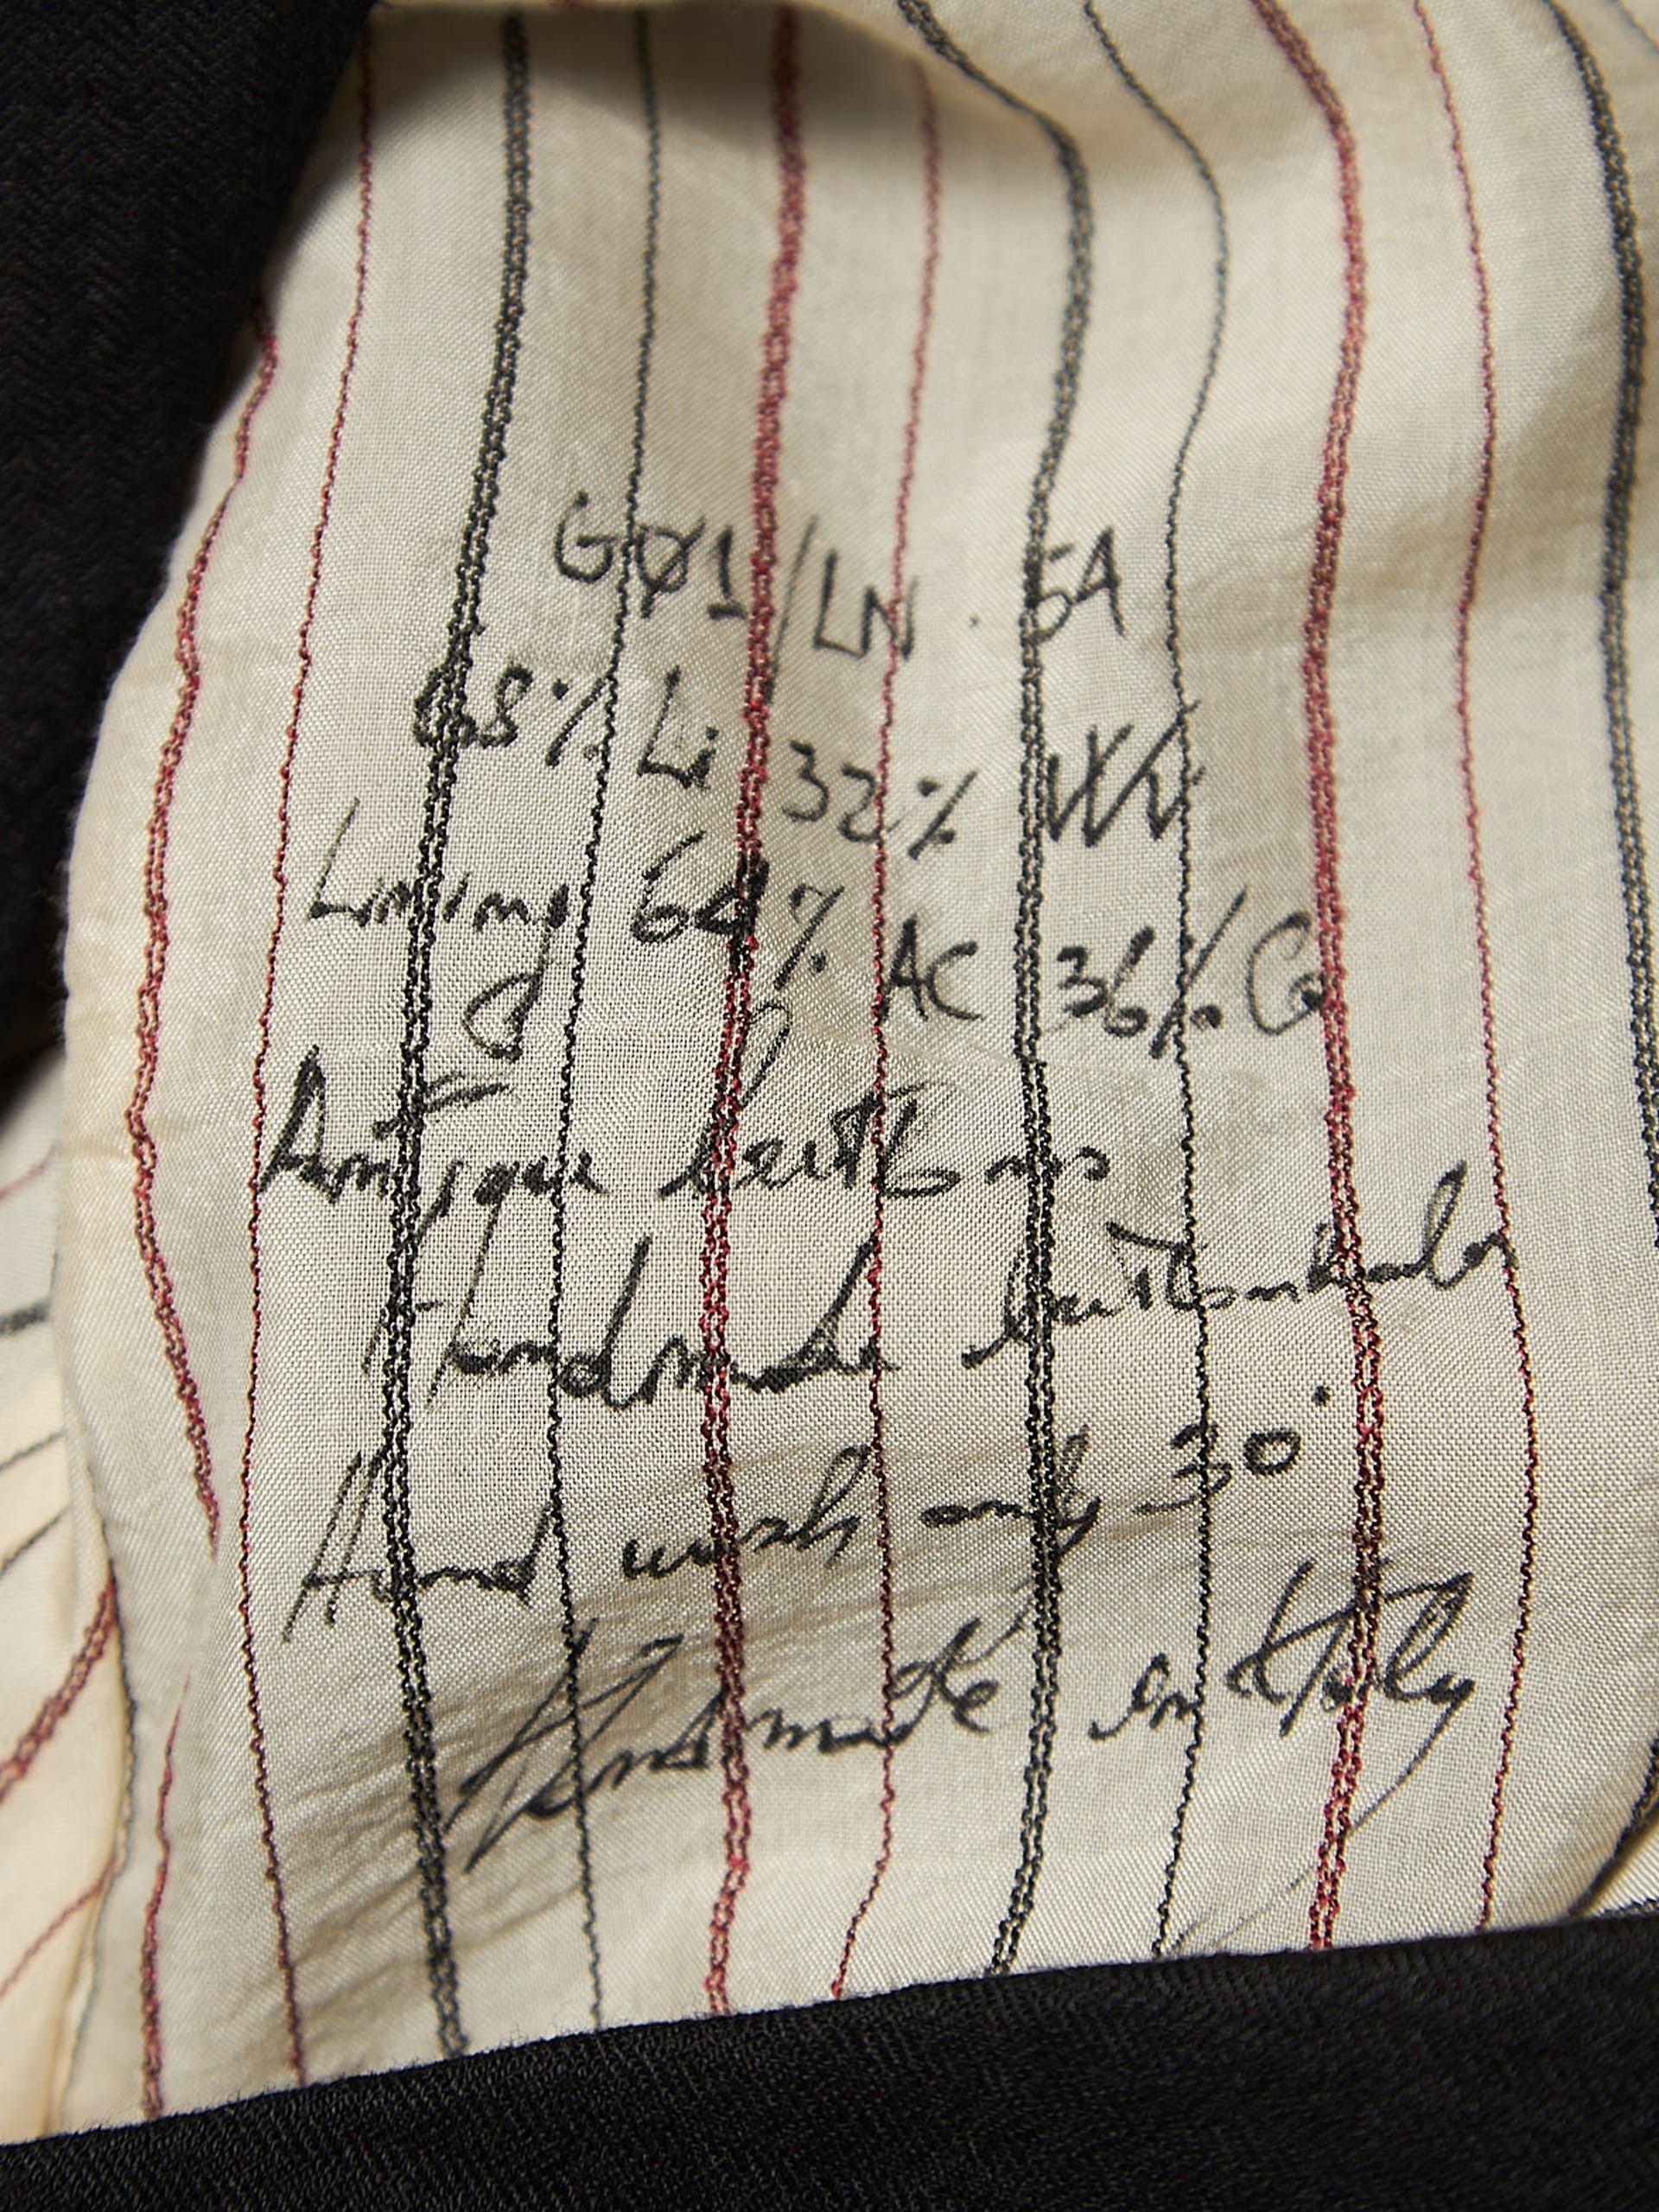 GØ1/LN . 5A
68% Li 32% WV
Lining 64% AC 36% Co
Antique buttons
Handmade buttonholes
Hand wash only 30°
Handmade in Italy